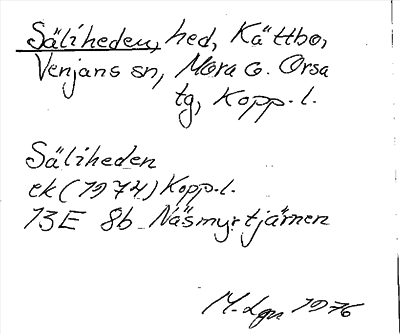 Säliheden, hed, Kättbo,
Venjans sn, Mora o. Orsa
tg, Kopp. l.
Säliheden
ek (1974) Kopp. l.
13E 8b Näsmyrtjärnen
1976